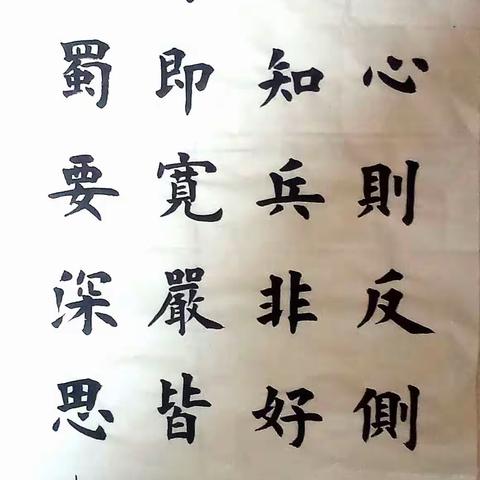 心則反側
知兵非好
即寬嚴皆
蜀要深思